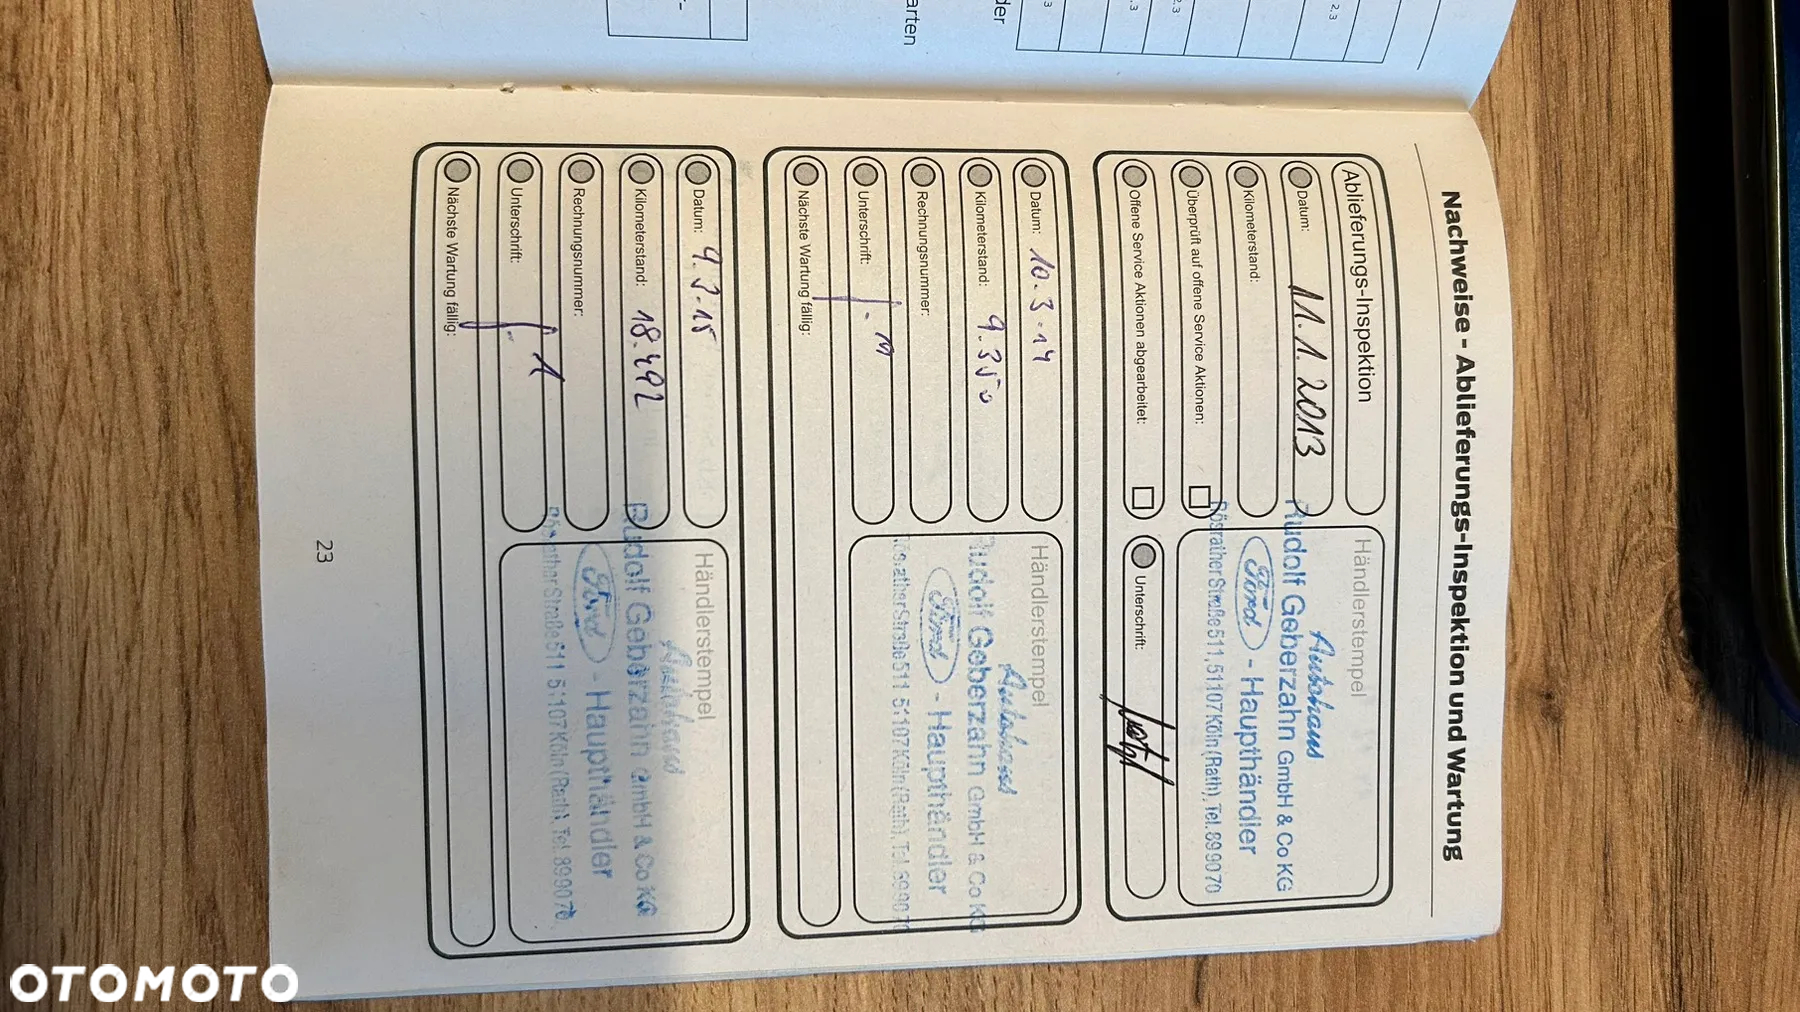 Nachweise - Ablieferungs-Inspektion und Wartung
Ablieferungs-Inspektion
Datum: 11.1.2013
Kilometerstand:
Überprüft auf offene Service Aktionen:
Offene Service Aktionen abgearbeitet:
Händlerstempel
Autohaus
Rudolf Geberzahn GmbH & Co KG
Ford - Haupthändler
Rösrather Straße 511, 51107 Köln (Rath), Tel. 899070
Unterschrift:
Datum: 10.3.14
Kilometerstand: 9.350
Rechnungsnummer:
Unterschrift:
Nächste Wartung fällig:
Händlerstempel
Autohaus
Rudolf Geberzahn GmbH & Co KG
Ford - Haupthändler
Rösrather Straße 511, 51107 Köln (Rath), Tel. 899070
Datum: 9.3.15
Kilometerstand: 18.492
Rechnungsnummer:
Unterschrift:
Nächste Wartung fällig:
Händlerstempel
Autohaus
Rudolf Geberzahn GmbH & Co KG
Ford - Haupthändler
Rösrather Straße 511, 51107 Köln (Rath), Tel. 899070
23
der
arten
2,3
OTOMOTO